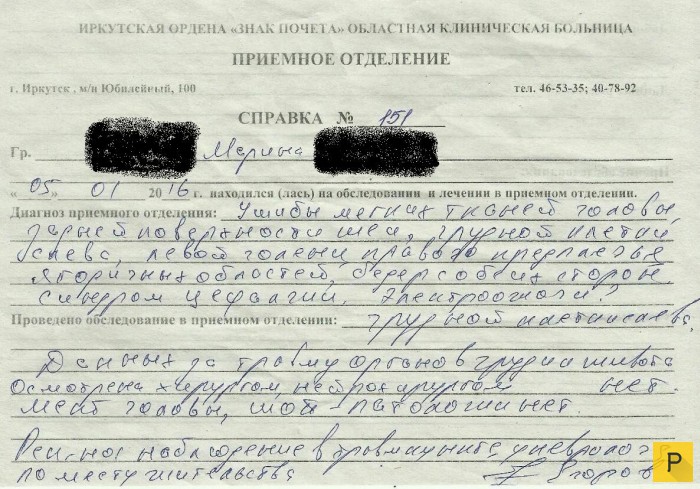 ИРКУТСКАЯ ОРДЕНА «ЗНАК ПОЧЕТА» ОБЛАСТНАЯ КЛИНИЧЕСКАЯ БОЛЬНИЦА
ПРИЕМНОЕ ОТДЕЛЕНИЕ
г. Иркутск , м/н Юбилейный, 100 тел. 46-53-35; 40-78-92
СПРАВКА № 151
Гр. Марина
« 05 » 01 20 16 г. находился (лась) на обследовании и лечении в приемном отделении.
Диагноз приемного отделения: Ушибы мягких тканей головы,
задней поверхности шеи, грудной клетки
слева, левой голени, правого предплечья
ягоричных областей, бедер с обеих сторон.
Синдром цефалгии. Электроожоги?
Проведено обследование в приемном отделении: грудной клетки слева,
Данных за травму органов груди и живота
Осмотрена хирургом, нейрохирургом нет.
головы, шеи - патологии нет.
наблюдение в травмпункте,
по месту жительства Егоров
P